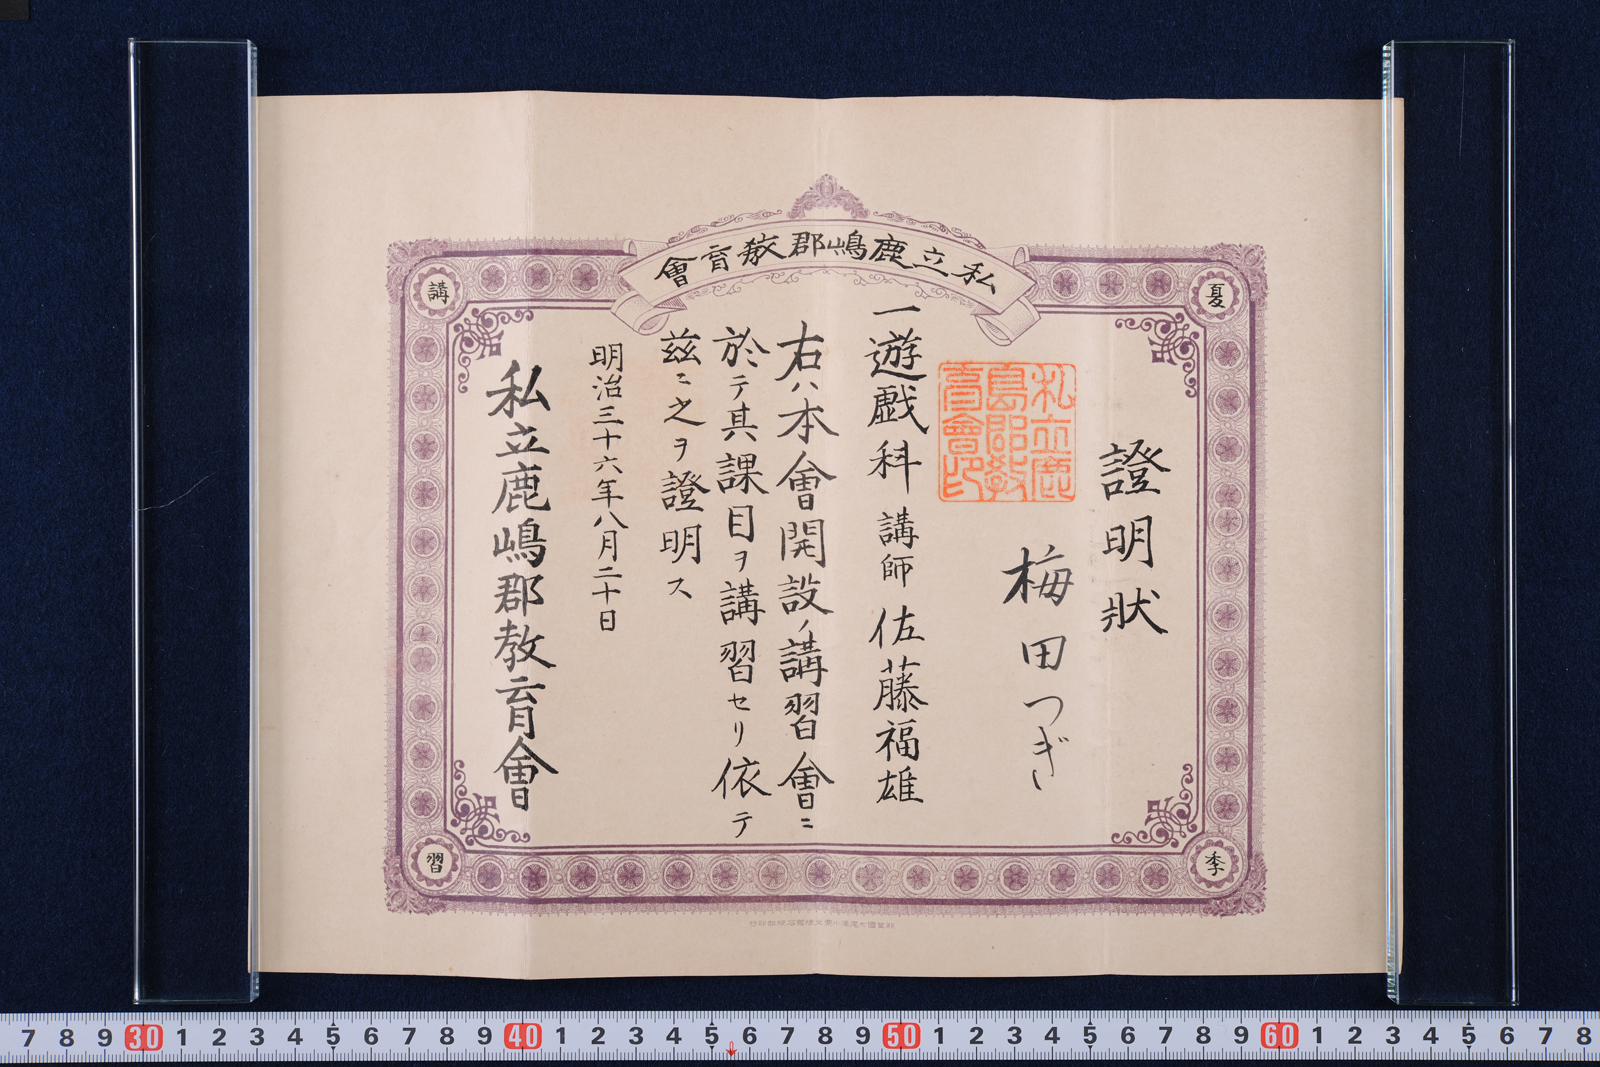 私立鹿嶋郡教育會
夏
季
講
習
證明狀
梅田つぎ
私立鹿
島郡教
育會印
一遊戯科 講師 佐藤福雄
右ハ本會開設ノ講習會ニ
於テ其課目ヲ講習セリ依テ
玆ニ之ヲ證明ス
明治三十六年八月二十日
私立鹿嶋郡教育會
7 8 9 30 1 2 3 4 5 6 7 8 9 40 1 2 3 4 5 6 7 8 9 50 1 2 3 4 5 6 7 8 9 60 1 2 3 4 5 6 7 8